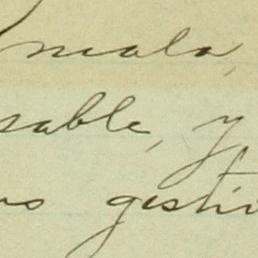 mala,
sable, y
os gesti